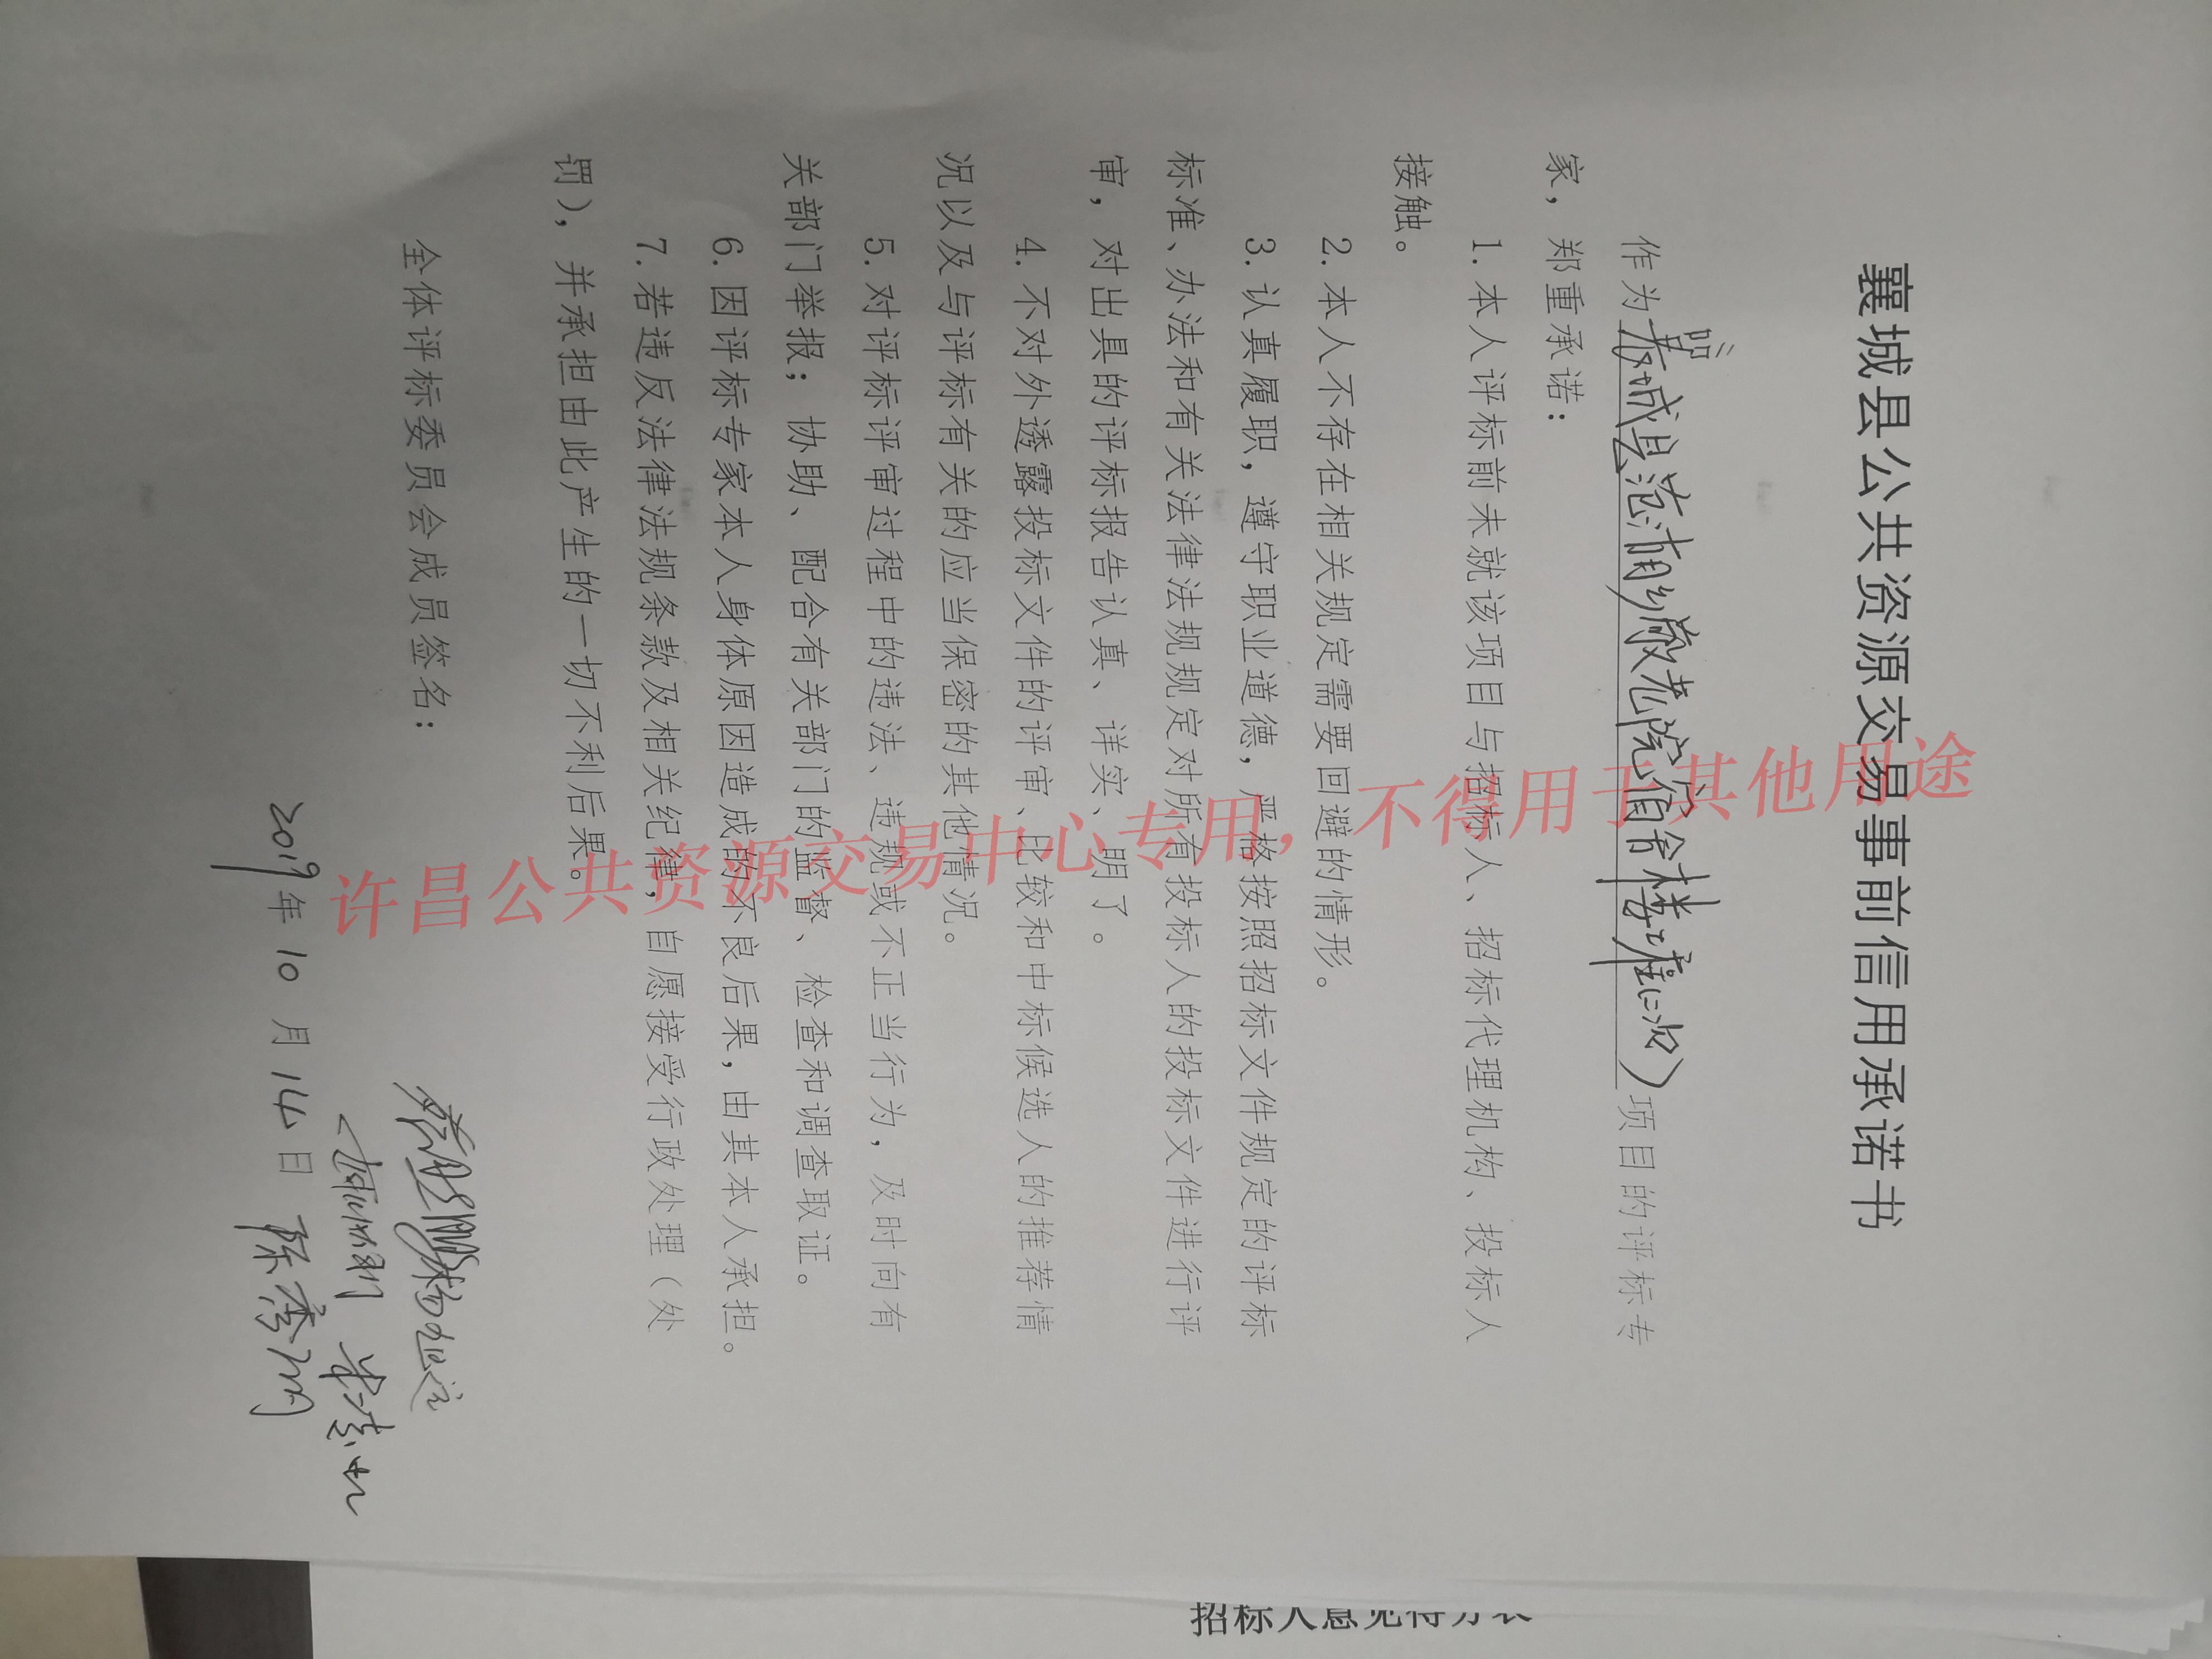 襄城县公共资源交易事前信用承诺书
作为襄城县范湖乡敬老院宿舍楼工程(二次)项目的评标专
家，郑重承诺：
1.本人评标前未就该项目与招标人、招标代理机构、投标人
接触。
2.本人不存在相关规定需要回避的情形。
3.认真履职，遵守职业道德，严格按照招标文件规定的评标
标准、办法和有关法律法规规定对所有投标人的投标文件进行评
审，对出具的评标报告认真、详实、明了。
4.不对外透露投标文件的评审、比较和中标候选人的推荐情
况以及与评标有关的应当保密的其他情况。
5.对评标评审过程中的违法、违规或不正当行为，及时向有
关部门举报；协助、配合有关部门的监督、检查和调查取证。
6.因评标专家本人身体原因造成的不良后果，由其本人承担。
7.若违反法律法规条款及相关纪律，自愿接受行政处理（处
罚），并承担由此产生的一切不利后果。
全体评标委员会成员签名：
2019年10月14日
许昌公共资源交易中心专用，不得用于其他用途